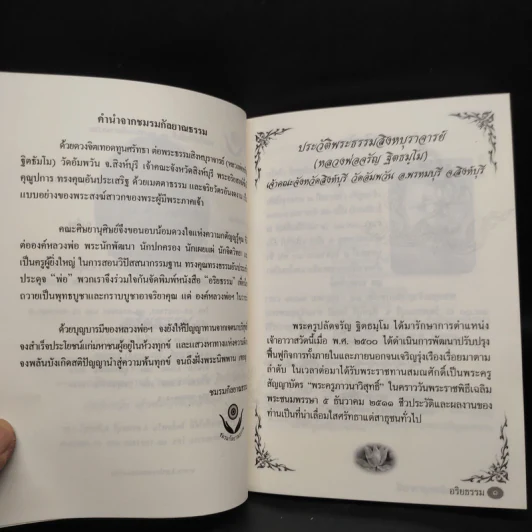 คำนำจากชมรมกัลยาณธรรม
ด้วยดวงจิตเทอดทูนศรัทธา ต่อพระธรรมสิงหบุราจารย์
ฐิตธัมโม) วัดอัมพวัน จ.สิงห์บุรี เจ้าคณะจังหวัดสิงห์บุรี
คุณูปการ ทรงคุณอันประเสริฐ ด้วยเมตตาธรรม
แบบอย่างของพระสงฆ์สาวกของพระผู้มีพระภาคเจ้า
คณะศิษยานุศิษย์จึงขอนอบน้อมดวงใจแห่งความกตัญญู
ต่อองค์หลวงพ่อ พระนักพัฒนา นักปกครอง นักเผยแผ่
เป็นครูผู้ยิ่งใหญ่ ในการสอนวิปัสสนากรรมฐาน
ประดุจ "พ่อ" พวกเราจึงร่วมใจกันจัดพิมพ์หนังสือ "อริยธรรม"
ถวายเป็นพุทธบูชาและกราบบูชาอาจริยาคุณ แด่ องค์หลวงพ่อฯ
ด้วยบุญบารมีของหลวงพ่อฯ จงยังให้ปัญญาทาน
จงสำเร็จประโยชน์แก่มหาชนผู้อยู่ในห้วงทุกข์
จงพลันบังเกิดสติปัญญานำสู่ความพ้นทุกข์ จนถึงฝั่งพระนิพพาน
ชมรมกัลยาณธรรม
ประวัติพระธรรมสิงหบุราจารย์
(หลวงพ่อจรัญ ฐิตธมฺโม)
เจ้าคณะจังหวัดสิงห์บุรี วัดอัมพวัน อ.พรหมบุรี จ.สิงห์บุรี
พระครูปลัดจรัญ ฐิตธมฺโม ได้มารักษาการตำแหน่ง
เจ้าอาวาสวัดนี้เมื่อ พ.ศ. ๒๕๐๐ ได้ดำเนินการพัฒนาปรับปรุง
ฟื้นฟูกิจการทั้งภายในและภายนอกจนเจริญรุ่งเรืองเรื่อยมาตาม
ลำดับ ในเวลาต่อมาได้รับพระราชทานสมณศักดิ์เป็นพระครู
สัญญาบัตร "พระครูภาวนาวิสุทธิ์" ในคราววันพระราชพิธีเฉลิม
พระชนมพรรษา ๕ ธันวาคม ๒๕๑๑ ชีวประวัติและผลงานของ
ท่านเป็นที่น่าเลื่อมใสศรัทธาแด่สาธุชนทั่วไป
อริยธรรม